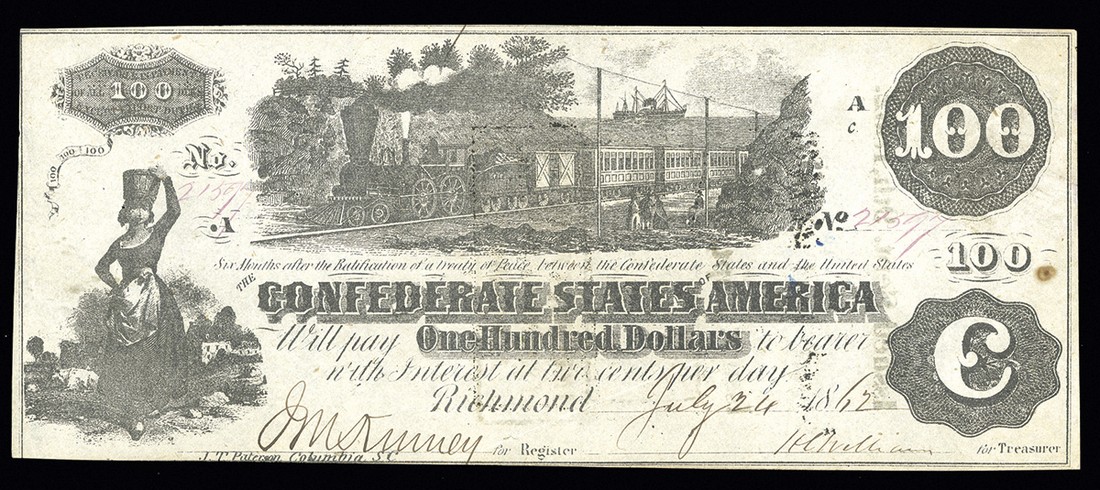 RECEIVABLE IN PAYMENT
OF ALL 100 DUES
EXCEPT EXPORT DUTIES
100 100 100
No.
.A
A
C.
100
No
100
Six Months after the Ratification of a treaty of Peace between the Confederate States and the United States
THE CONFEDERATE STATES OF AMERICA
Will pay One Hundred Dollars to bearer
with Interest at two cents per day
Richmond July 24 1862
C
for Register
for Treasurer
J.T. Paterson, Columbia, S.C